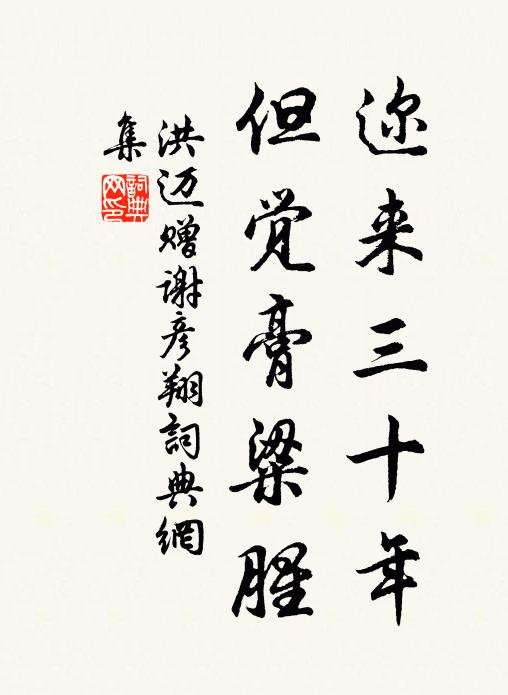 迩来三十年
但觉膏粱腥
洪迈赠谢彦翔詞典網
集
詞典网印